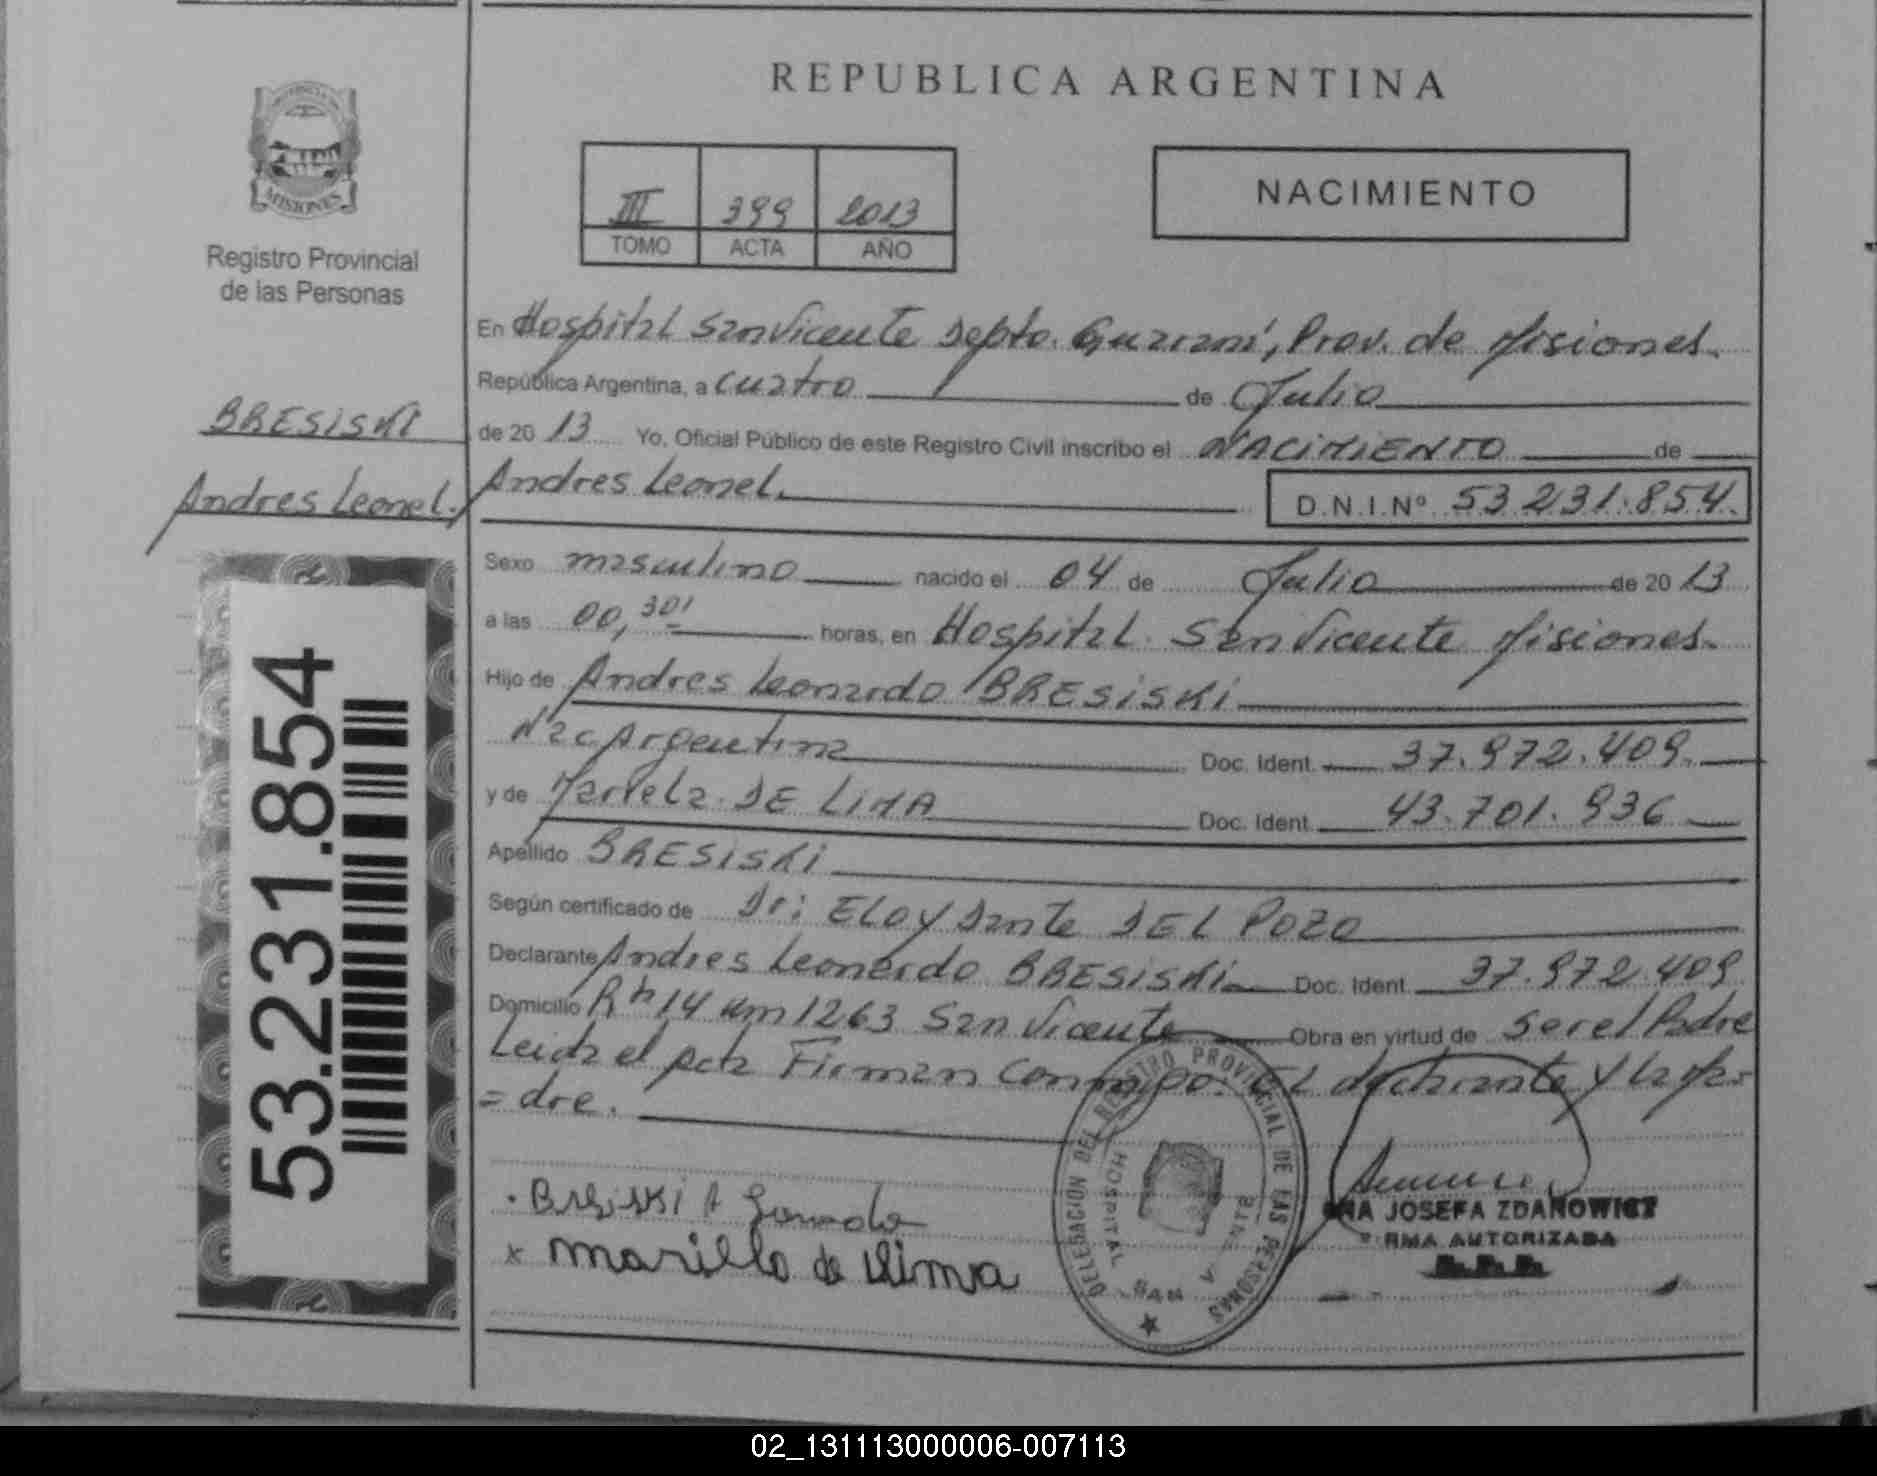 REPUBLICA ARGENTINA
MISIONES
Registro Provincial
de las Personas
III 399 2013
TOMO ACTA AÑO
NACIMIENTO
En Hospital San Vicente Depto. Guarani, Prov. de Misiones.
República Argentina, a cuatro de Julio
de 20 13 Yo, Oficial Público de este Registro Civil inscribo el NACIMIENTO de
BRESISKI
Andres Leonel.
Andres Leonel. D.N.I.Nº 53.231.854.
Sexo masculino nacido el 04 de Julio de 20 13
a las 00,30' horas, en Hospital San Vicente Misiones.
Hijo de Andres Leonardo BRESISKI
Nac Argentina Doc. Ident. 37.972.409.
y de DE LIMA Doc. Ident. 43.701.936
Apellido BRESISKI
Según certificado de Dr: ELOY Dante DEL POZO
Declarante Andres Leonardo BRESISKI Doc. Ident. 37.972.409
Domicilio Rn 14 Km 1263 San Vicente Obra en virtud de ser el Padre
Leida el acta Firman Conmigo: EL declarante y la Ma-
= dre.
53.231.854
DELEGACION DEL REGISTRO PROVINCIAL DE LAS PERSONAS
HOSPITAL SAN VICENTE
JOSEFA ZDANOWICZ
FIRMA AUTORIZADA
de Lima
02_131113000006-007113